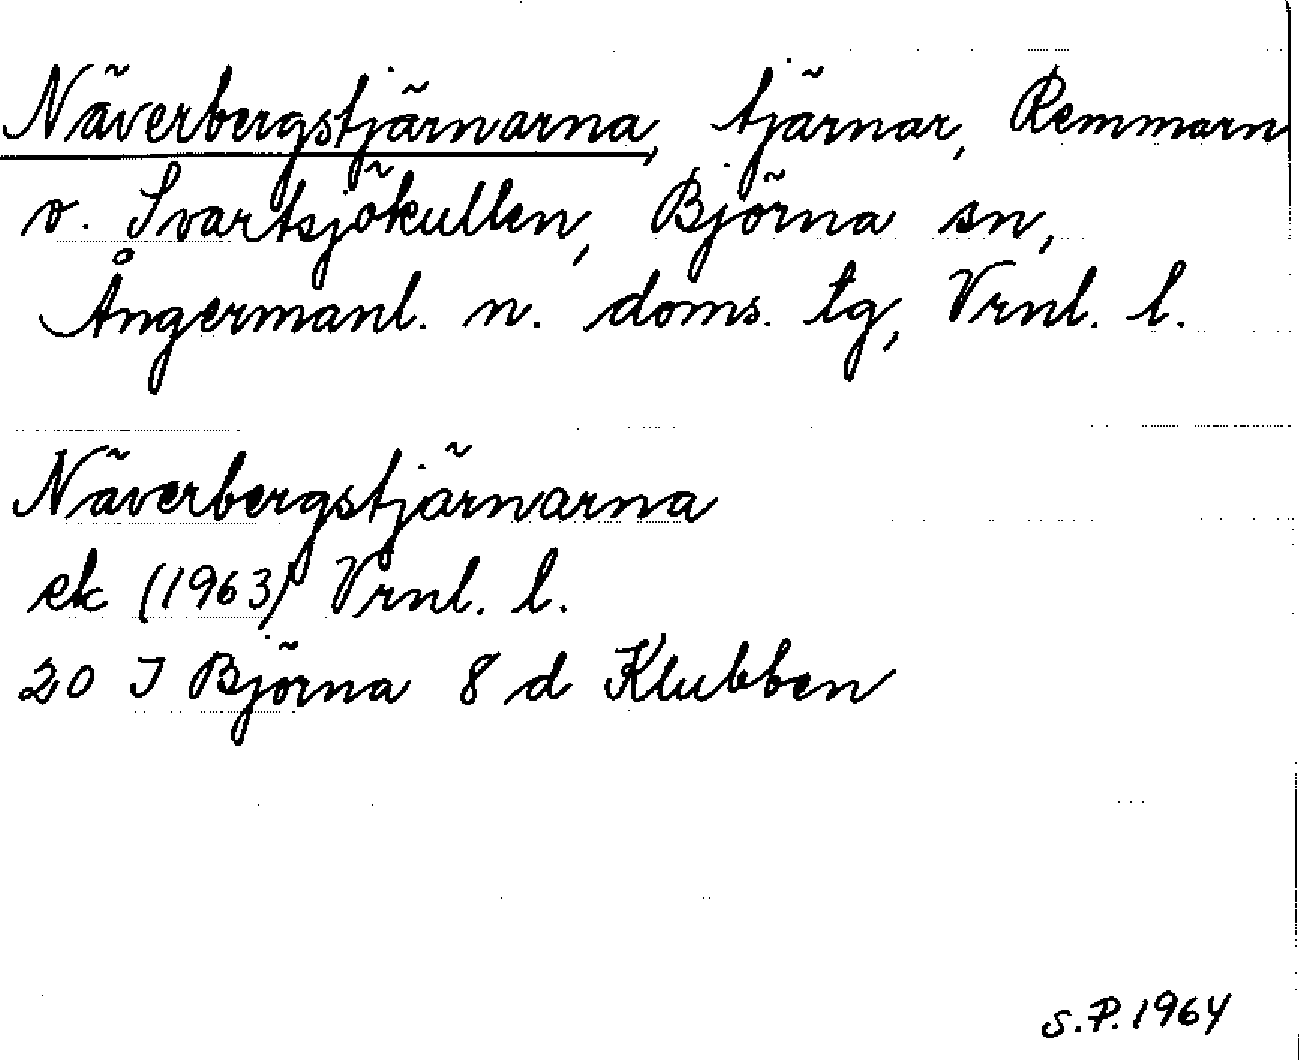 Näverbergstjärnarna, tjärnar, Remmarn
v. Svartsjökullen, Björna sn,
Ångermanl. n. doms. tg, Vrnl. l.
Näverbergstjärnarna
ek (1963) Vrnl. l.
20 I Björna 8 d Klubben
S.P. 1964